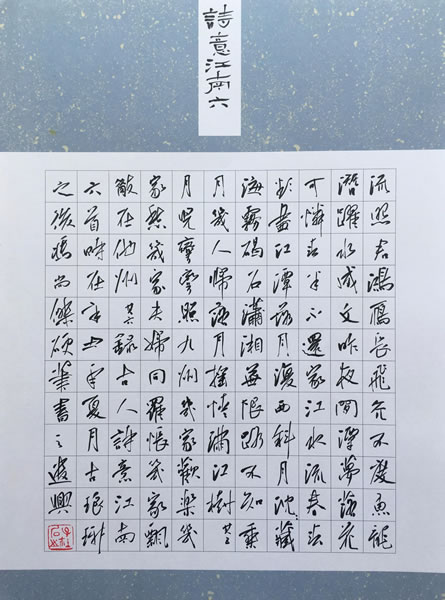 詩意江南六
流照君鴻雁长飛光不度魚龍
潜躍水成文昨夜閒潭夢落花
可憐春半不還家江水流春去
欲盡江潭落月復西斜月沉藏
海霧碣石瀟湘無限路不知乘
月幾人歸落月摇情滿江樹其二
月兒彎彎照九州幾家歡樂幾
家愁幾家夫婦同羅帳幾家飄
散在他州其録古人詩意江南
六首時在辛丑年夏月古琅琊
之後橋尚傑碩業書之遣興